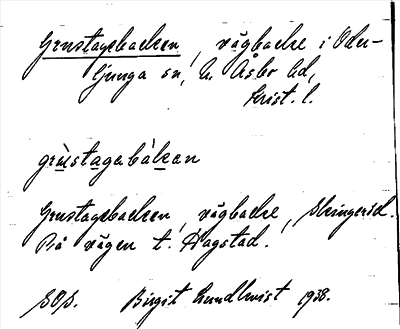 Grustagsbacken, vägbacke i Oder-
ljunga sn, N. Åsbo hd,
Krist. l.
grùstagabàkan
Grustagsbacken, vägbacke, Skingeröd.
På vägen t. Hagstad.
SOS. Birgit Lundkvist 1938.